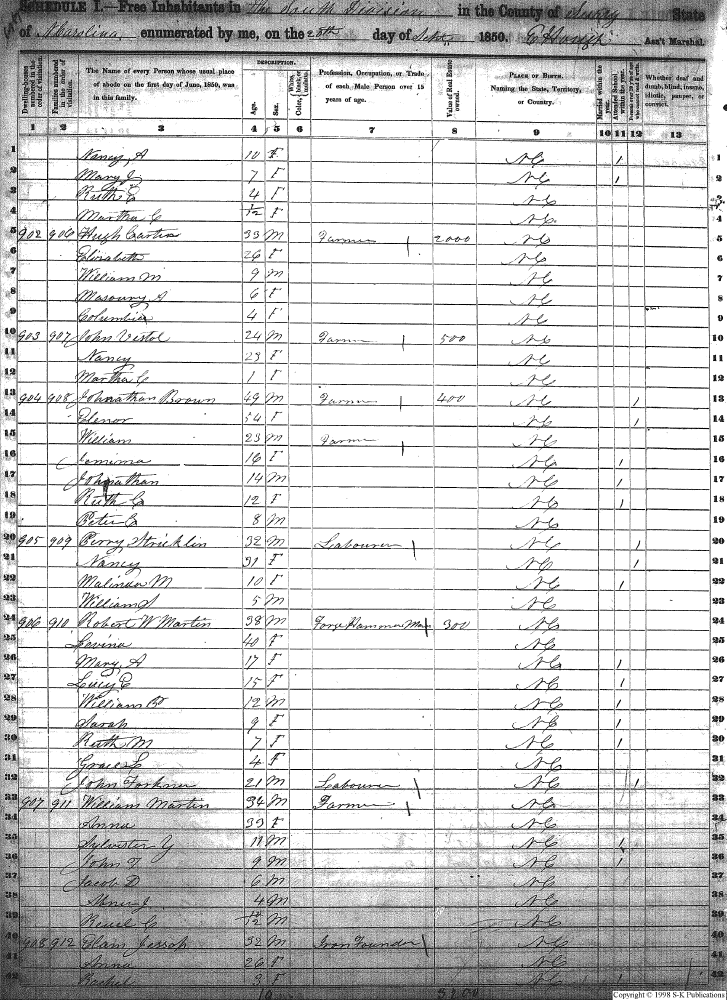 SCHEDULE I.—Free Inhabitants in The South Division in the County of Surry State
of N Carolina enumerated by me, on the 20th day of Sept 1850. Ass't Marshal.
Dwelling-houses numbered in the order of visitation.
Families numbered in the order of visitation.
The Name of every Person whose usual place of abode on the first day of June, 1850, was in this family.
DESCRIPTION.
Age.
Sex.
Color, White, black, or mulatto.
Profession, Occupation, or Trade of each Male Person over 15 years of age.
Value of Real Estate owned.
PLACE OF BIRTH. Naming the State, Territory, or Country.
Married within the year.
Attended School within the year.
Whether deaf and dumb, blind, insane, idiotic, pauper, or convict.
1 2 3 4 5 6 7 8 9 10 11 12 13
1 Nancy A 10 F NC / 1
2 Mary J 7 F NC / 2
3 Ruth E 4 F NC 3
4 Martha C F NC 4
5 902 906 Hugh Carter 33 M Farmer 2000 NC 5
6 Elizabeth 26 F NC 6
7 William M 9 M NC 7
8 A 6 F NC 8
9 Columbia 4 F NC 9
10 903 907 John Vestol 24 M Farmer 500 NC 10
11 Nancy 23 F NC 11
12 Martha C 1 F NC 12
13 904 908 Johnathan Brown 49 M Farmer 400 NC / 13
14 Elenor 54 F NC / 14
15 William 23 M Farmer NC 15
16 Jemima 16 F NC / 16
17 Johnathan 14 M NC / 17
18 Ruth C 12 F NC / 18
19 Peter C 8 M NC 19
20 905 909 Perry Stricklin 32 M Leabourer NC / 20
21 Nancy 31 F NC / 21
22 Malinda M 10 F NC / 22
23 William S 5 M NC 23
24 906 910 Robert W Martin 38 M Forge Hammer Man 300 NC 24
25 Lavina 40 F NC 25
26 Mary A 17 F NC / 26
27 Lucy E 15 F NC / 27
28 William B 12 M NC / 28
29 Sarah 9 F NC / 29
30 Ruth M 7 F NC / 30
31 Grace L 4 F NC 31
32 John Forkner 21 M Leabourer NC / 32
33 907 911 William Martin 34 M Farmer NC 33
34 Anna 33 F NC 34
35 Sylvester Y 11 M NC / 35
36 John T 9 M NC / 36
37 Jacob D 6 M NC 37
38 Abner J 4 M NC 38
39 C M NC 39
40 908 912 Elam Jessop 32 M Iron Founder NC 40
41 Anna 26 F NC 41
42 Rachel 3 F NC 42
Copyright © 1998 S-K Publications